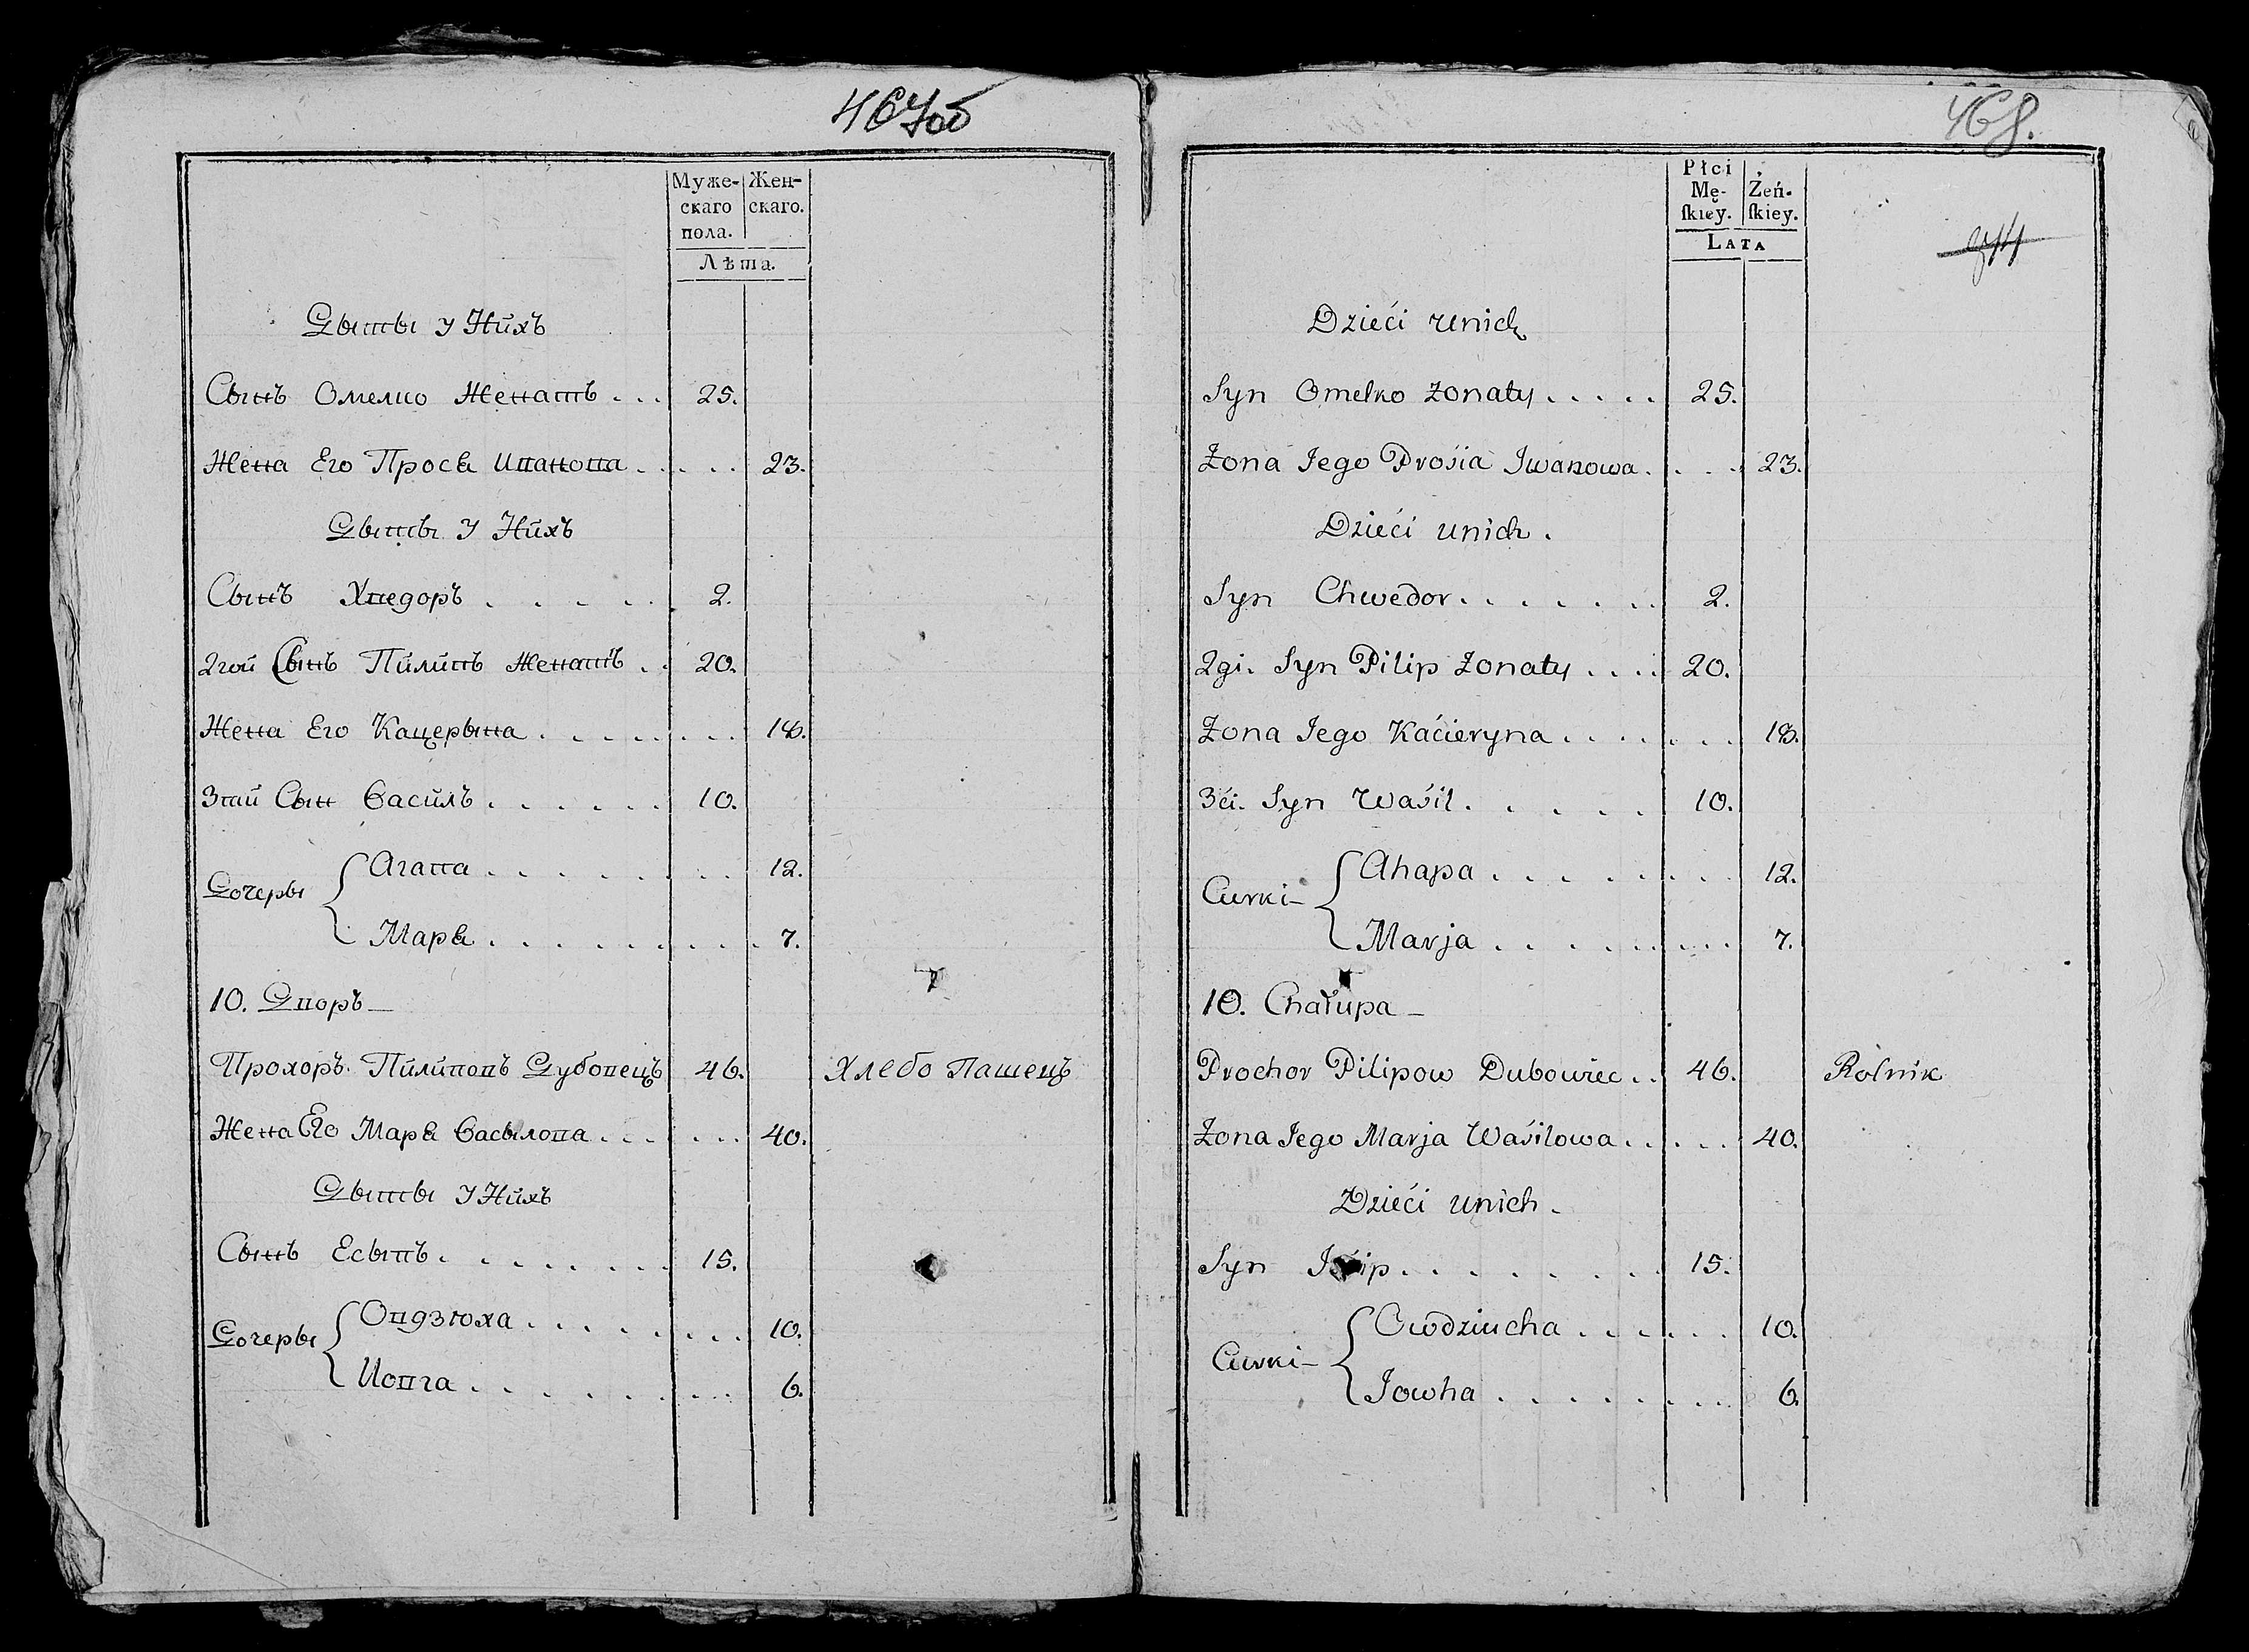 467об
Муже-
скаго
пола.
Жен-
скаго.
Лѣта.
Дыты у Нихъ
Сынъ Омелко Женатъ . . . 25.
Жена Его Прося Иванова . . . . 23.
Дыты У Нихъ
Сынъ Хведоръ . . . . . 2.
2гой Сынъ Пилипъ Женатъ . . 20.
Жена Его Кацерына . . . . . . . 18.
3тий Сын Василъ . . . . . . 10.
Дочеры
Агапа . . . . . . . . 12.
Маря . . . . . . . . . 7.
10. Дворъ –
Прохоръ Пилиповъ Дубовецъ 46. Хлебо Пашецъ
Жена Его Маря Васылова . . . . . . 40.
Дыты У Нихъ
Сынъ Есыпъ . . . . . . . . 15.
Дочеры
Овдзюха . . . . . . . . 10.
Иовга . . . . . . . . 6.
468.
Płci
Mę-
ſkiey.
Żeń-
ſkiey.
LATA
Dzieći unich
Syn Omelko żonaty . . . . . 25.
Żona Jego Prośia Jwanowa . . . . 23.
Dzieći unich .
Syn Chwedor . . . . . . . 2.
2gi. Syn Pilip żonaty . . . . 20.
Żona Jego Kaćieryna . . . . . . . 18.
3ći. Syn Waśil . . . . . 10.
Curki –
Ahapa . . . . . . . . 12.
Marja . . . . . . . . 7.
10. Chałupa –
Prochor Pilipow Dubowiec . . 46. Rolnik
Żona Jego Marja Waśilowa . . . . . 40.
Dzieći unich .
Syn . . . . . . . . 15.
Curki –
Owdziucha . . . . . . 10.
Jowha . . . . . . . . 6.